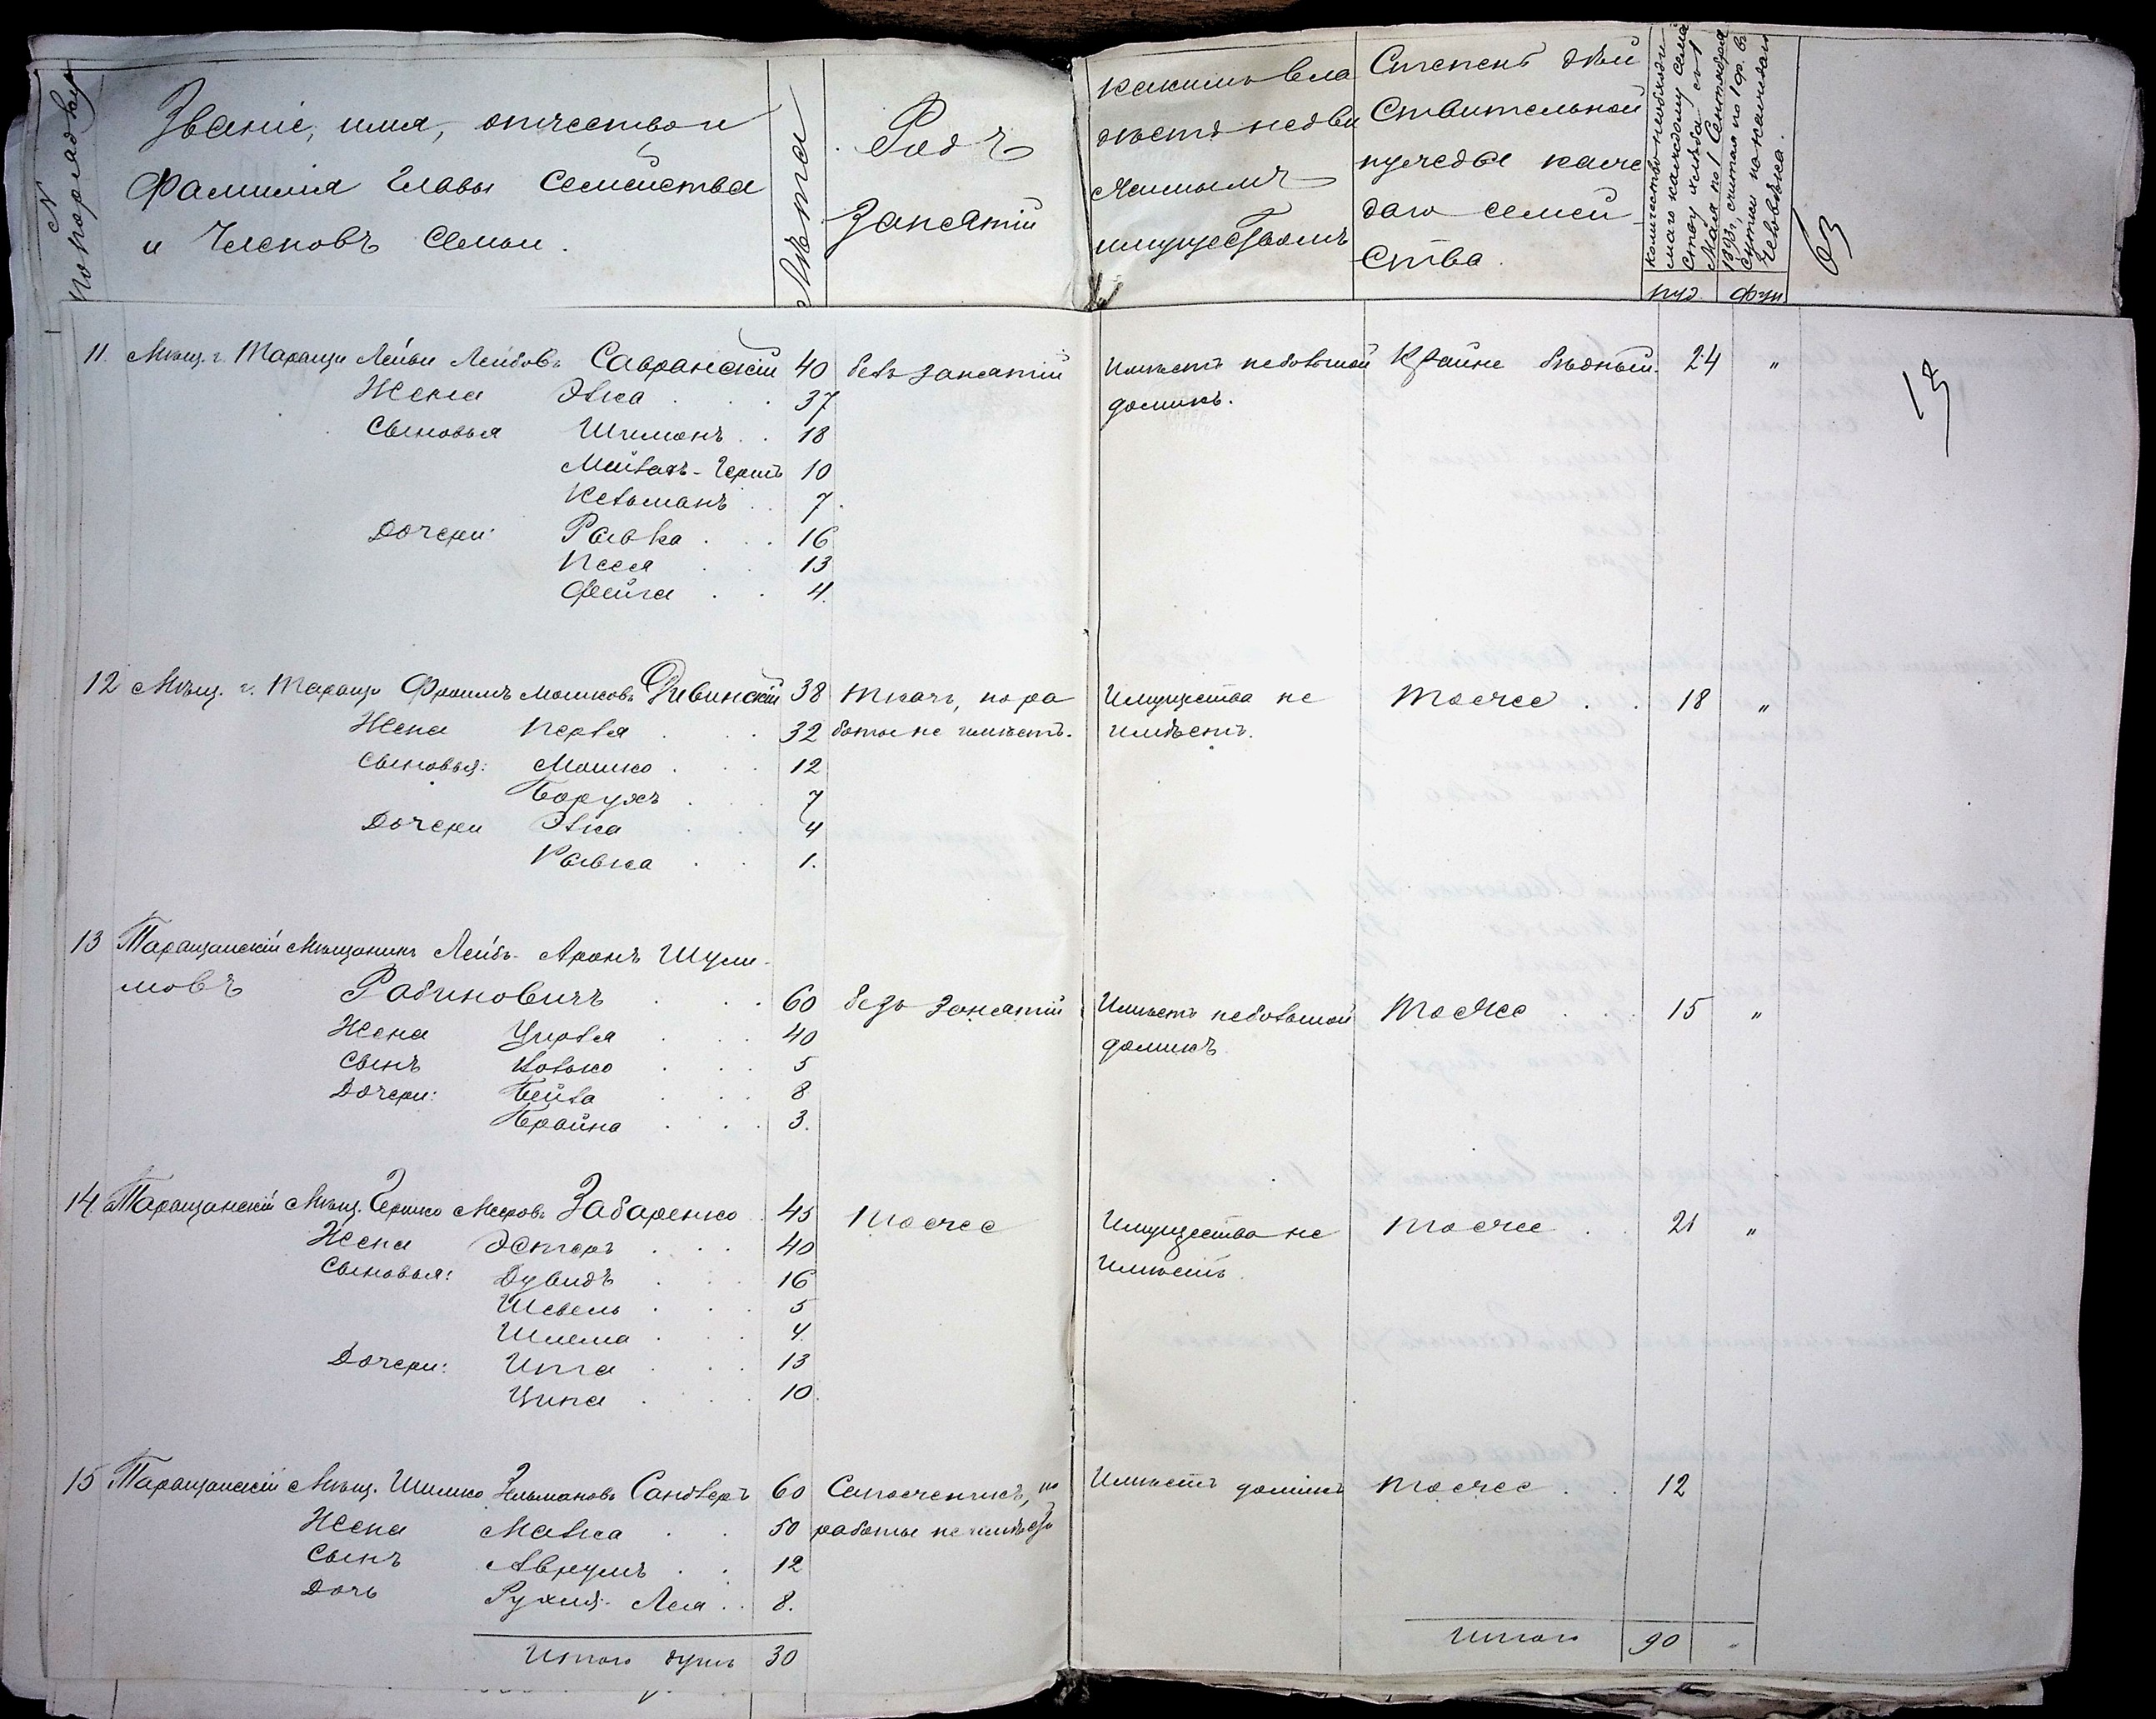 N
по порядку
Званіе, имя, отчество и
фамилія главы семейства
и членовъ семьи.
Лѣта
Родъ
Занятій
Какимъ вла
дѣетъ недви
жимымъ
имуществомъ
Степень дѣй
ствительной
нужды каж
даго семей
ства.
Количество необходи
маго каждому семей
ству хлѣба съ 1
Мая по 1 Сентября
1893 г., считая по 1 ф. въ
сутки на каждаго
человѣка.
пуд. фун.
63
13
11. Мѣщ. г. Таращи Лейви Лейбовъ Савранскій 40 безъ занятій Имѣетъ небольшой Крайне бѣдный. 24 "
домикъ.
Жена Элка . . . 37
Сыновья Шимонъ . . 18
Мейлахъ-Гершъ 10
Кельманъ . . 7.
Дочери: Рывка . . . 16
Песя . . 13
Фейга . . 4.
12 Мѣщ. г. Таращи Фроимъ Мошковъ Дивинскій 38 Ткачъ, но ра Имущества не Тоже . . 18 "
Жена Перля . . . 32 боты не имѣетъ. имѣетъ.
Сыновья: Мошко . . . 12
Борухъ . . 7
Дочери Элка . . 4
Рывка . . 1.
13 Таращанскій мѣщанинъ Лейбъ-Аронъ Шули-
мовъ Рабиновичъ . . . 60 безъ занятій Имѣетъ небольшой Тоже . . . 15 "
Жена Цирля . . . 40 домикъ
Сынъ Волько . . . 5
Дочери: Бейла . . . 8
Брайна . . . 3.
14 Таращанскій мѣщ. Гершко Мееровъ Забаренко . 45 Тоже Имущества не Тоже . . 21 "
Жена Эстеръ . . . 40 имѣетъ.
Сыновья: Дувидъ . . . 16
Шевель . . . 5
Шлема . . . 4.
Дочери: Ита . . . 13
Ципа . . . 10.
15 Таращанскій мѣщ. Шимко Зельмановъ Сандлеръ 60 Сапожникъ, но Имѣетъ домикъ Тоже . . 12
Жена Малка . . 50 работы не имѣетъ
Сынъ Аврумъ . . 12
Дочь Рухля-Лея . . 8.
Итого душъ 30
Итого 90 "